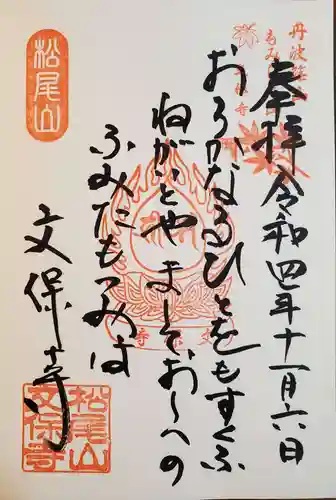 丹波篠山
奉拝 令和四年十一月六日
おろかなるひとをもすくふ
ねがいとや ましておしへの
ふみたもつみは
文保寺
松尾山
松尾山
文保寺